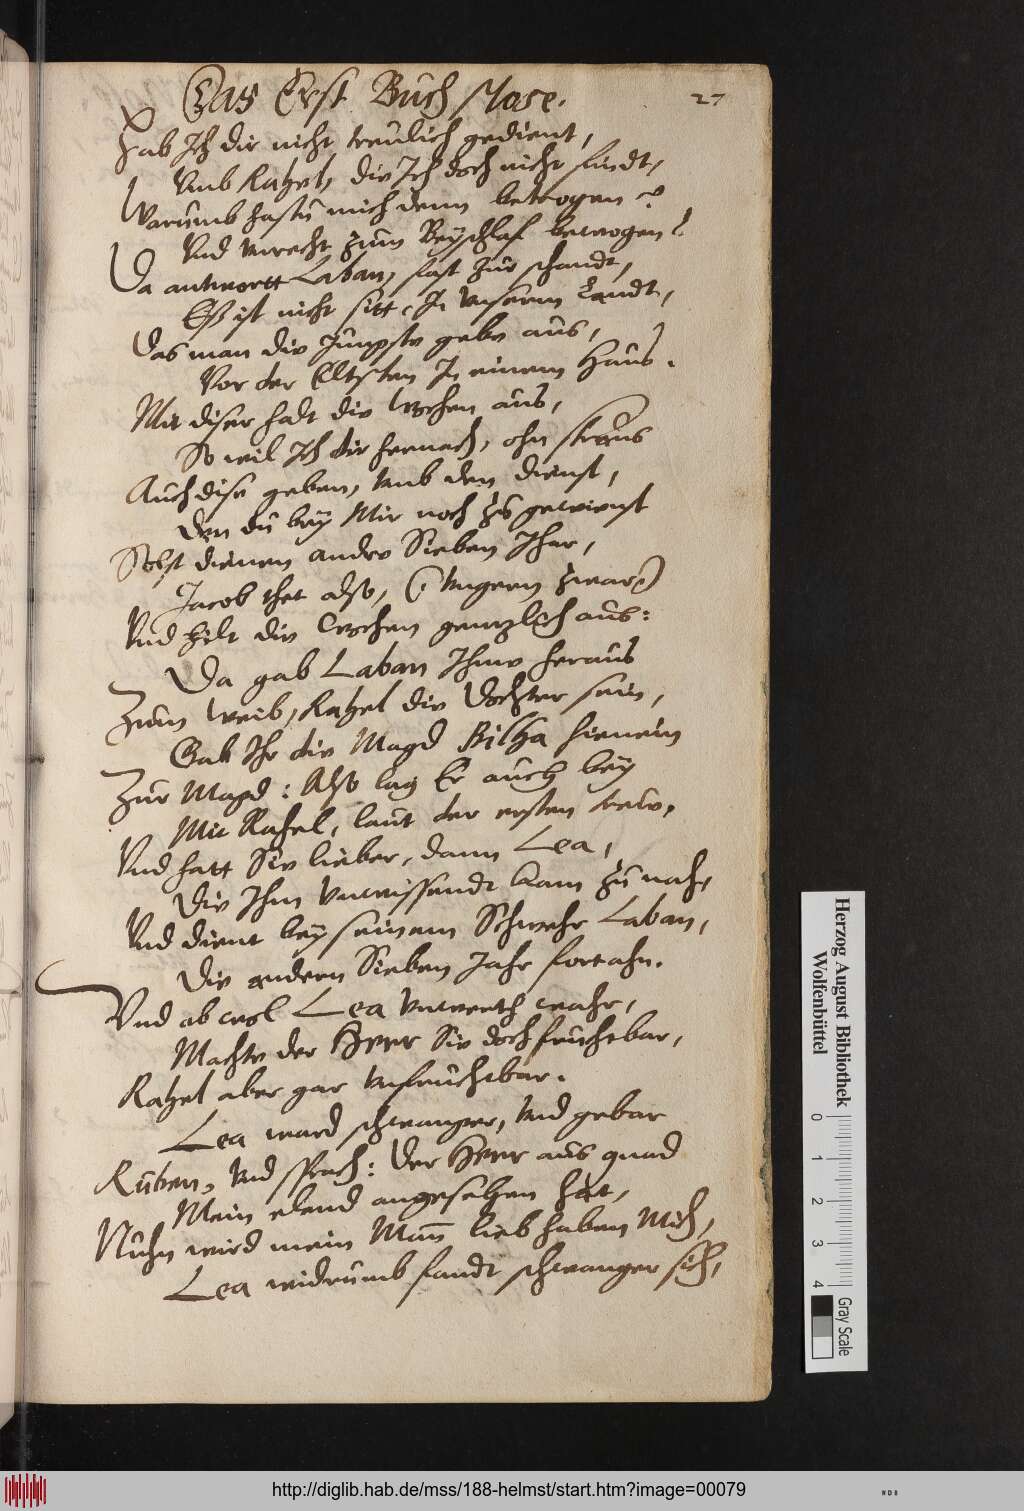 Das Erst Buch Mose.
27
Hab Ich dir nicht treulich gedient,
Umb Rahel, die Ich doch nicht findt,
Warumb hastu mich denn betrogen?
Und Unrecht zum Beyschlaf bewogen?
Da antwortt Laban, fast zur schandt,
Es ist nicht sitt, In Unserm Landt,
Das man die Jüngste gebe aus,
Vor der Eltsten In einem Haus.
Mit diser halt die Wochen aus,
So wil Ich dir hernach, ohn straus
Auch dise geben, Umb den dienst,
Den du bey Mir noch gewinst
Solst dienen andre Sieben Ihar,
Jacob thet also, (Ungern zwar)
Und hilt die Wochen gentzlich aus:
Da gab Laban Ihme heraus
Zum Weib, Rahel die Dochter sein,
Gab Ihr die Magd Bilha hienein
Zur Magd: Also lag Er auch bey
Mit Rahel, laut der ersten trew,
Und hatt Sie lieber, dann Lea,
Die Ihm Unwissendt kam zu nah,
Und dient bey seinem Schwehr Laban,
Die andern Sieben Jahr fortahn.
Und ob wol Lea Unwerth wahr,
Machte der Herr Sie doch fruchtbar,
Rahel aber gar Unfruchtbar.
Lea ward schwanger, Und gebar
Ruben, Und sprach: Der Herr aus gnad
Mein elend angesehen hat,
Nuhn wird mein Mann lieb haben Mich,
Lea widrumb fandt schwanger sich,
Herzog August Bibliothek
Wolfenbüttel
0 1 2 3 4
Gray Scale
http://diglib.hab.de/mss/188-helmst/start.htm?image=00079